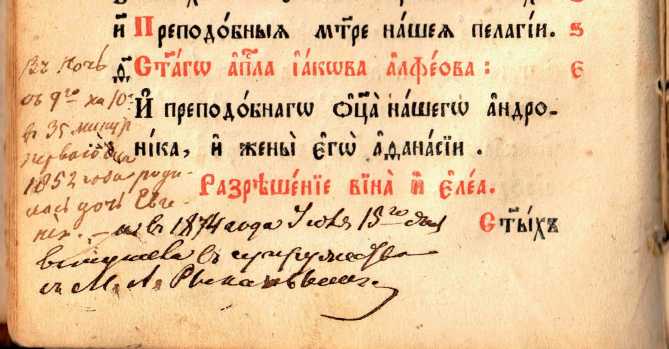 и҆ Преподо́бныѧ мт҃ре на́шеѧ пелагі́и. ѕ
Ст҃а́гѡ а҆п҃ла і҆а́кѡва а҆лфе́ова : є
И҆ преподо́бнагѡ ѻ҆ц҃а̀ на́шегѡ а҆ндро-
ні́ка, и҆ жены̀ є҆гѡ̀ а҆ѳана́сїи .
Разрѣше́нїе вїна̀ и҆ є҆ле́а.
Ст҃ы́хъ
Въ ночь
съ 9го на 10е
в 35 минут
перваго
1852 года роди
лась дочь Евге
нія. — а в 1874 года Іюля 15го дня
вступила в супружество
съ М. А.